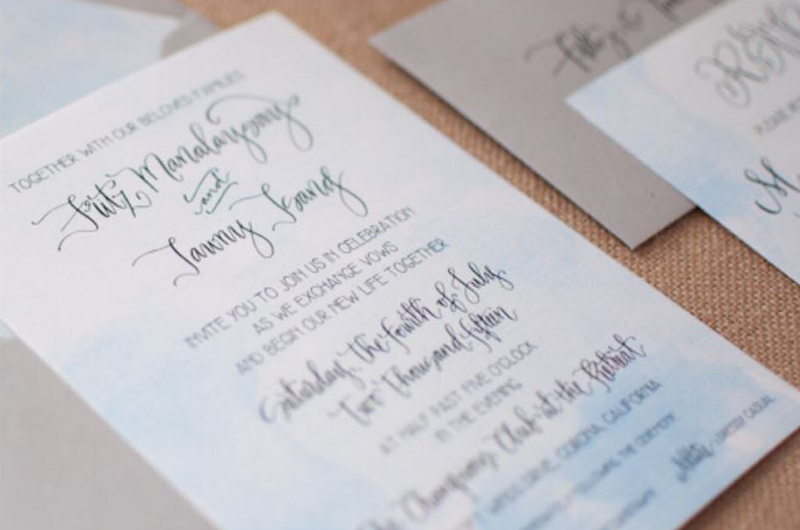 TOGETHER WITH OUR BELOVED FAMILIES
Fritz Manalaysay
and
Tawny Tsang
INVITE YOU TO JOIN US IN CELEBRATION
AS WE EXCHANGE VOWS
AND BEGIN OUR NEW LIFE TOGETHER
Saturday, the Fourth of July
Two Thousand fifteen
AT HALF PAST FIVE O'CLOCK
IN THE EVENING
The Champions Club at the Retreat
DRIVE, CORONA, CALIFORNIA
FOLLOWING THE CEREMONY
CASUAL
Fritz &
RSVP
PLEASE
M